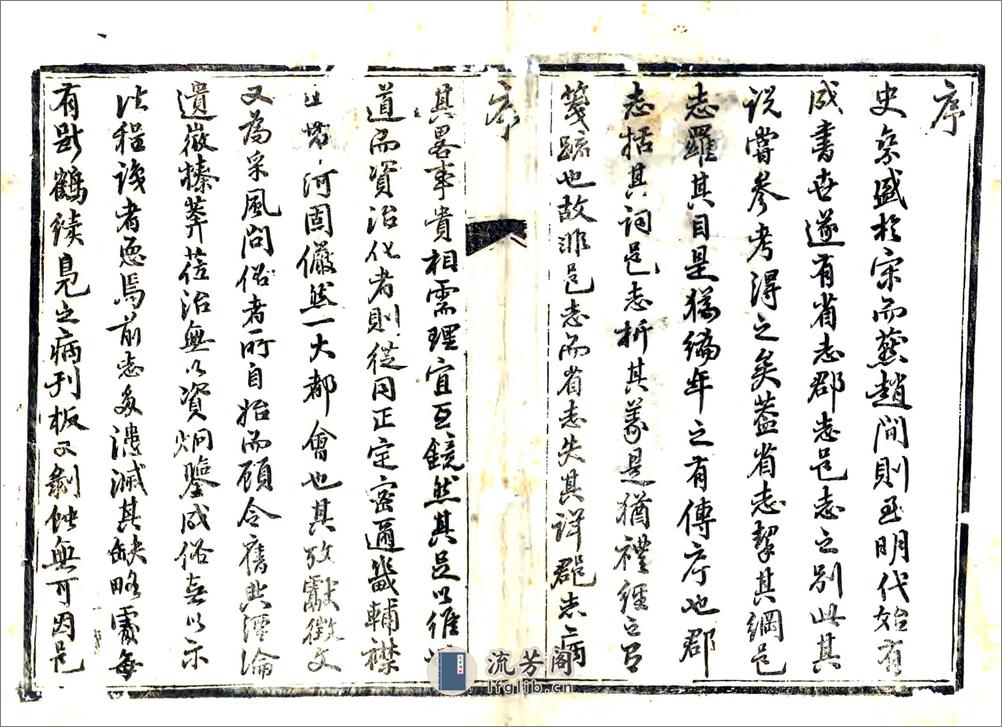 序
史乘盛於宋而燕趙間則至明代始有
成書世遂有省志郡志邑志之別此其
說嘗參考得之矣蓋省志挈其綱邑
志羅其目是猶編年之有傳序也郡
志括其詞邑志析其義是猶禮經之有
箋疏也故非邑志而省志失其詳郡志病
序
其畧事貴相需理宜互鏡然其足以維
道而資治化者則從同正定密邇畿輔襟
河固儼然一大都會也其攷獻徵文
又為采風問俗者所自始而顧令舊典湮淪
遺徽榛莽蒞治無以資炯鑒成俗無以示
法程識者慝焉前志多漶滅其缺略處每
有斷鶴續鳧之病刊板又剝蝕無可因邑
流芳阁
lfglib.cn